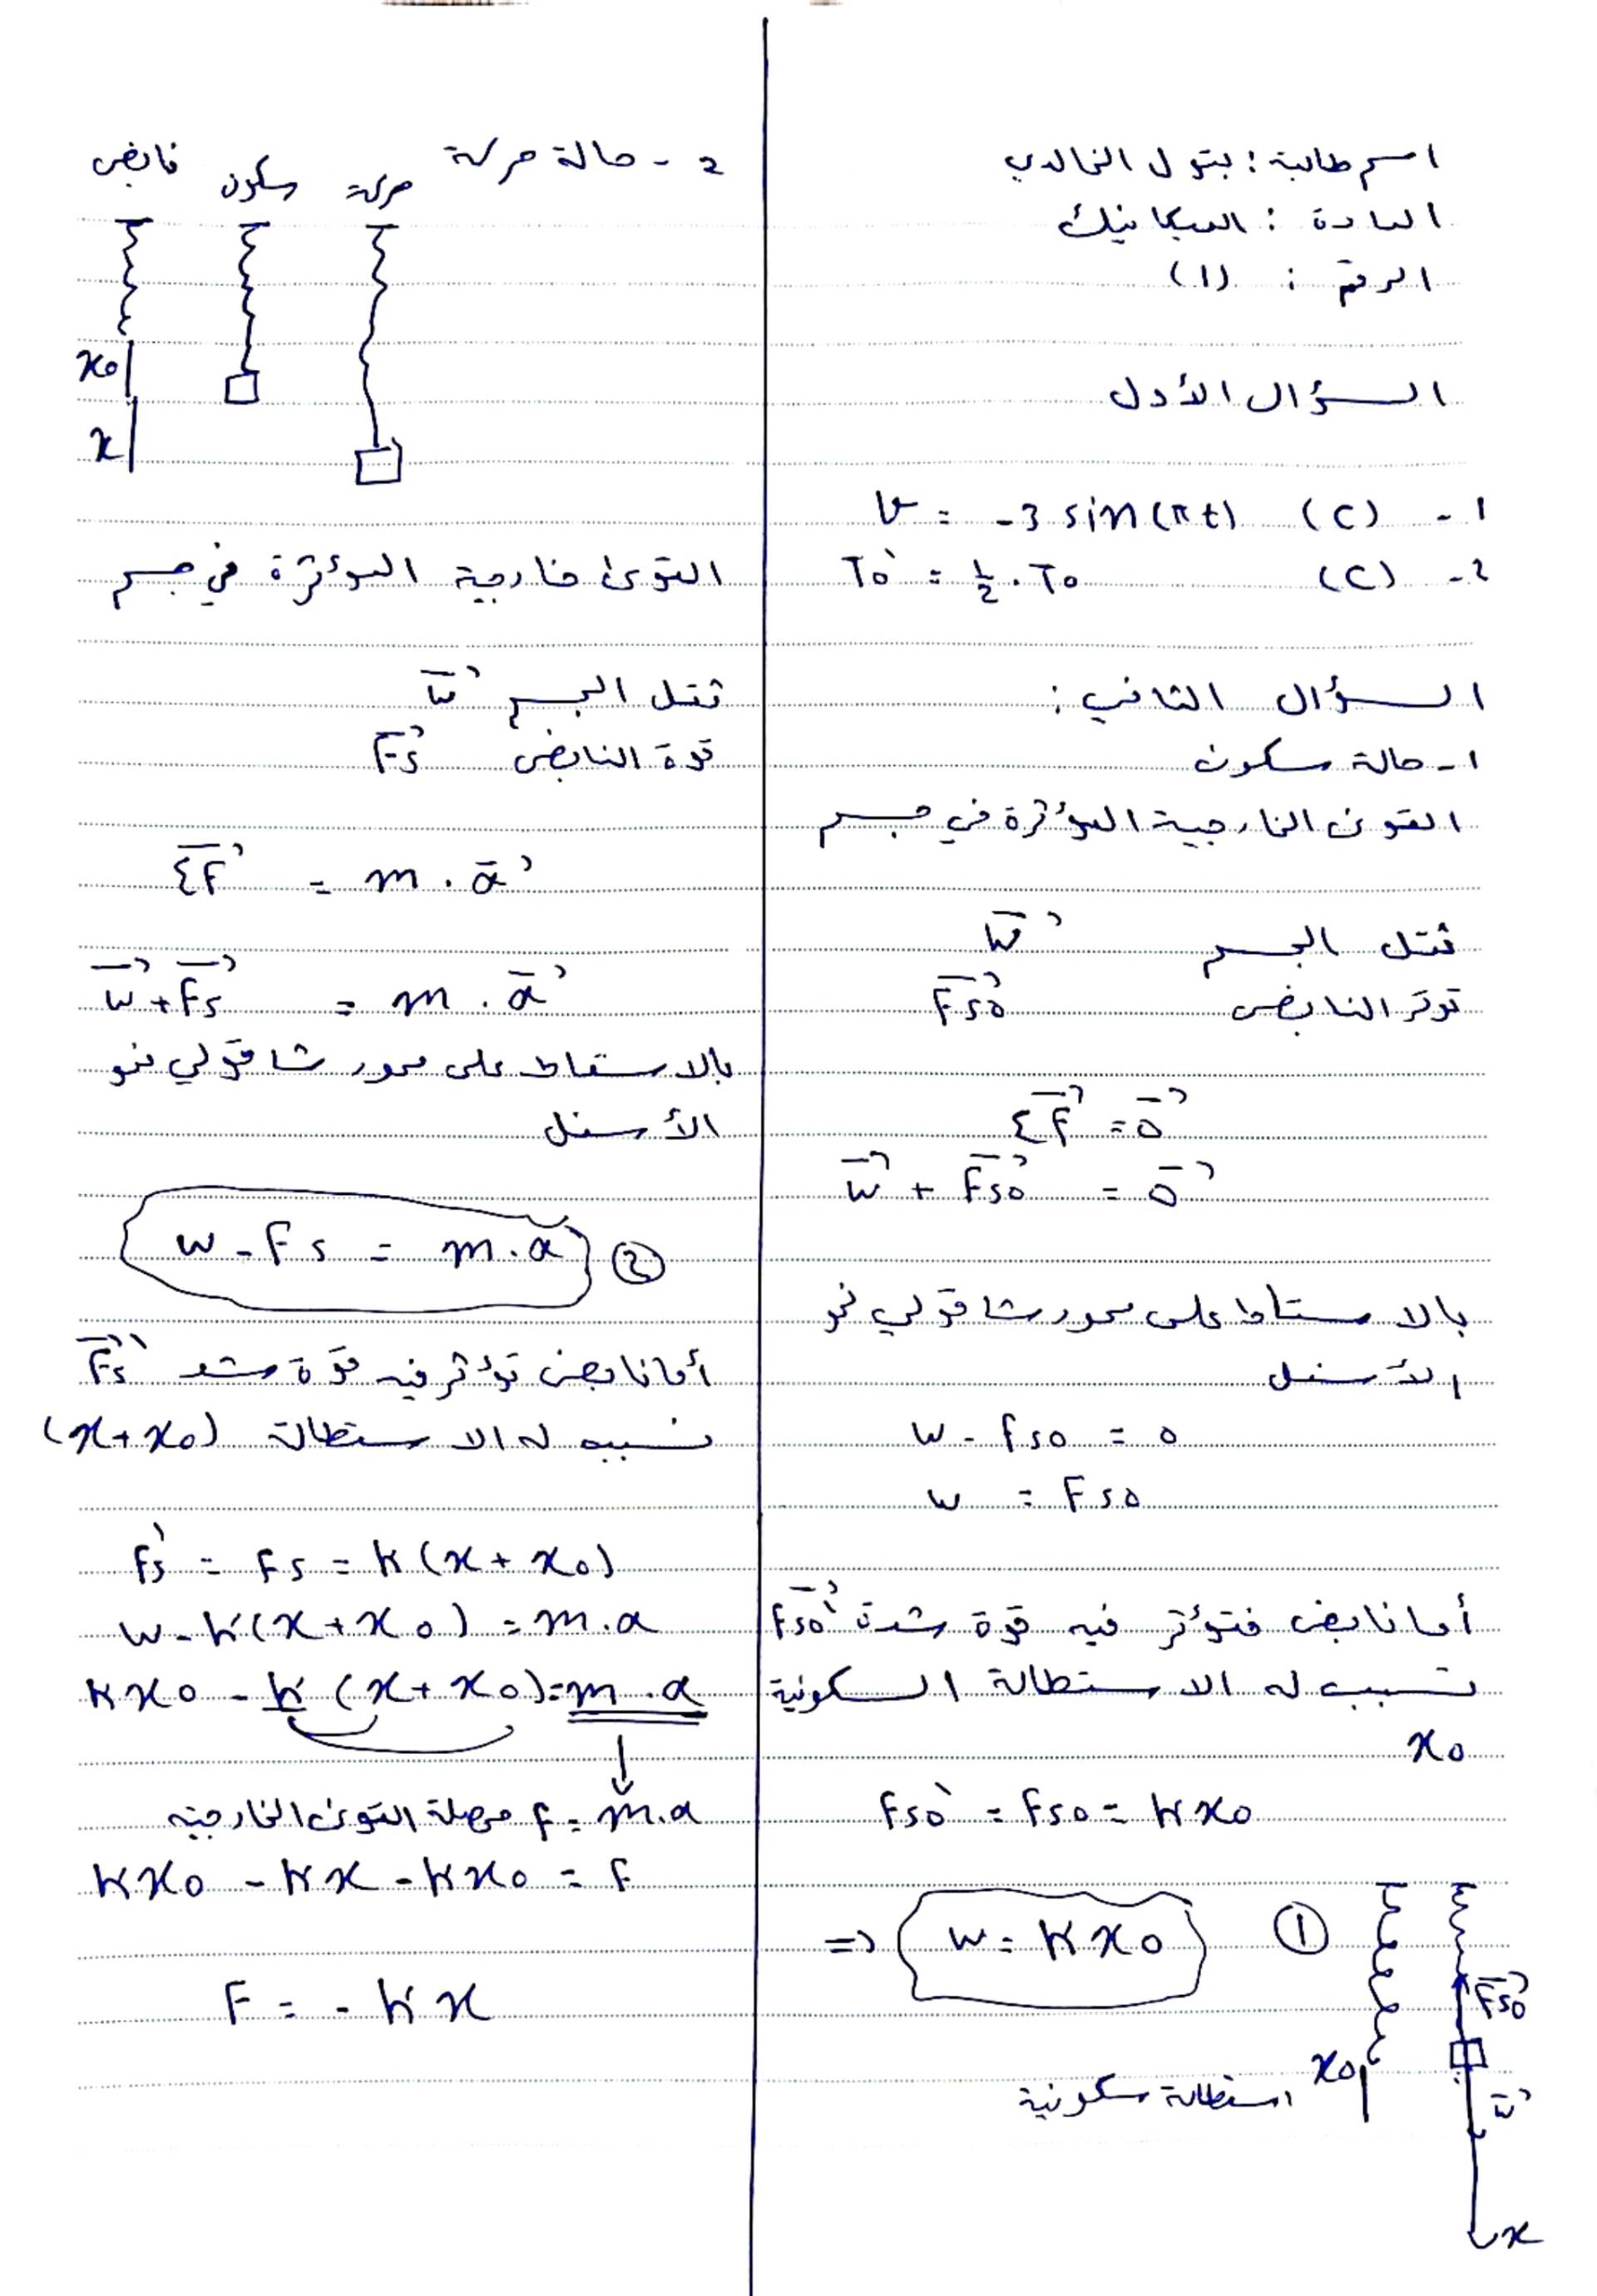 اسم طالبة : بتول الخالدي
المادة : الميكانيك
الرقم : (1)
السؤال الأول
1 - (C) v = -3 sin(πt)
2 - (C) T0' = 1/2 . T0
السؤال الثاني :
1 - حالة سكون
القوى الخارجية المؤثرة في جسم
ثقل الجسم w⃗
توتر النابض Fs0⃗
ΣF⃗ = 0⃗
w⃗ + Fs0⃗ = 0⃗
بالاسقاط على محور شاقولي نحو
الأسفل
w - Fs0 = 0
w = Fs0
أما نابض فتؤثر فيه قوة شدة Fs0'⃗
تسبب له الاستطالة السكونية
x0
Fs0' = Fs0 = kx0
⇒ w = kx0 ①
Fs0⃗
w⃗
x
x0
استطالة سكونية
2 - حالة حركة
نابض سكون حركة
x0
x
القوى خارجية المؤثرة في جسم
ثقل الجسم w⃗
قوة النابض Fs⃗
ΣF⃗ = m . a⃗
w⃗ + Fs⃗ = m . a⃗
بالاسقاط على محور شاقولي نحو
الأسفل
w - Fs = m . a ②
أما نابض تؤثر فيه قوة شد Fs'⃗
تسبب له الاستطالة (x + x0)
Fs' = Fs = k(x + x0)
w - k(x + x0) = m.a
kx0 - k(x + x0) = m.a
m.a = F محصلة القوى الخارجية
kx0 - kx - kx0 = F
F = - kx